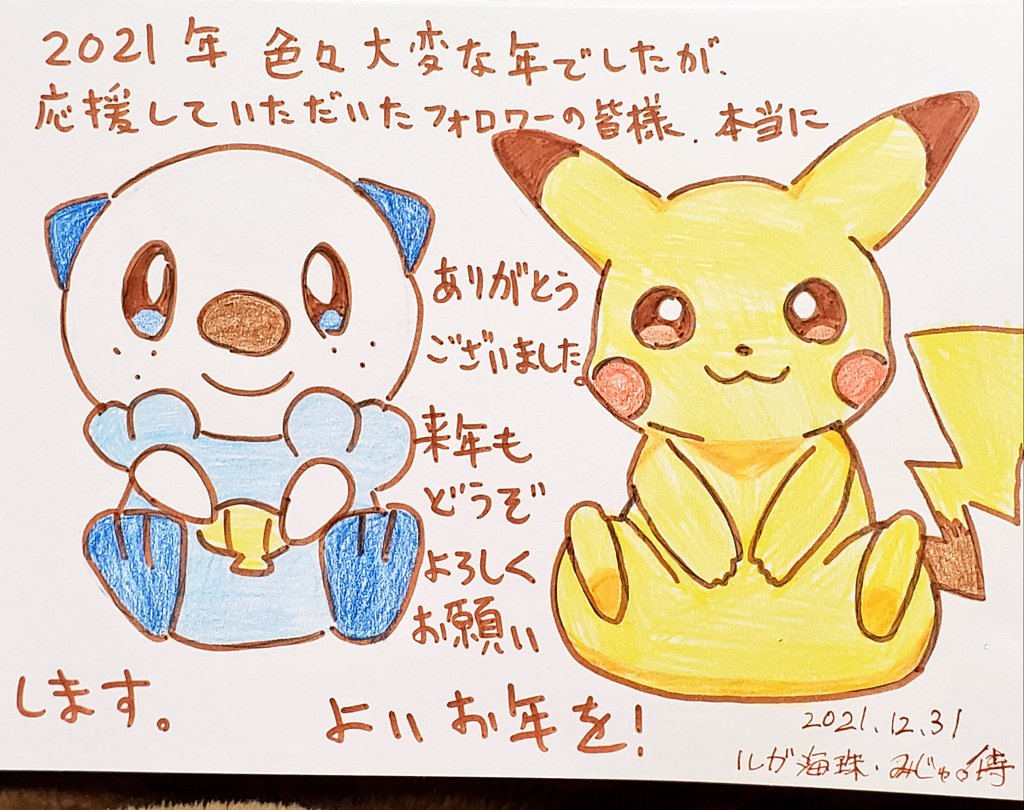 2021年 色々大変な年でしたが、
応援していただいたフォロワーの皆様、本当に
ありがとう
ございました。
来年も
どうぞ
よろしく
お願い
します。
よいお年を!
2021.12.31
ルガ海珠・みじゅ。